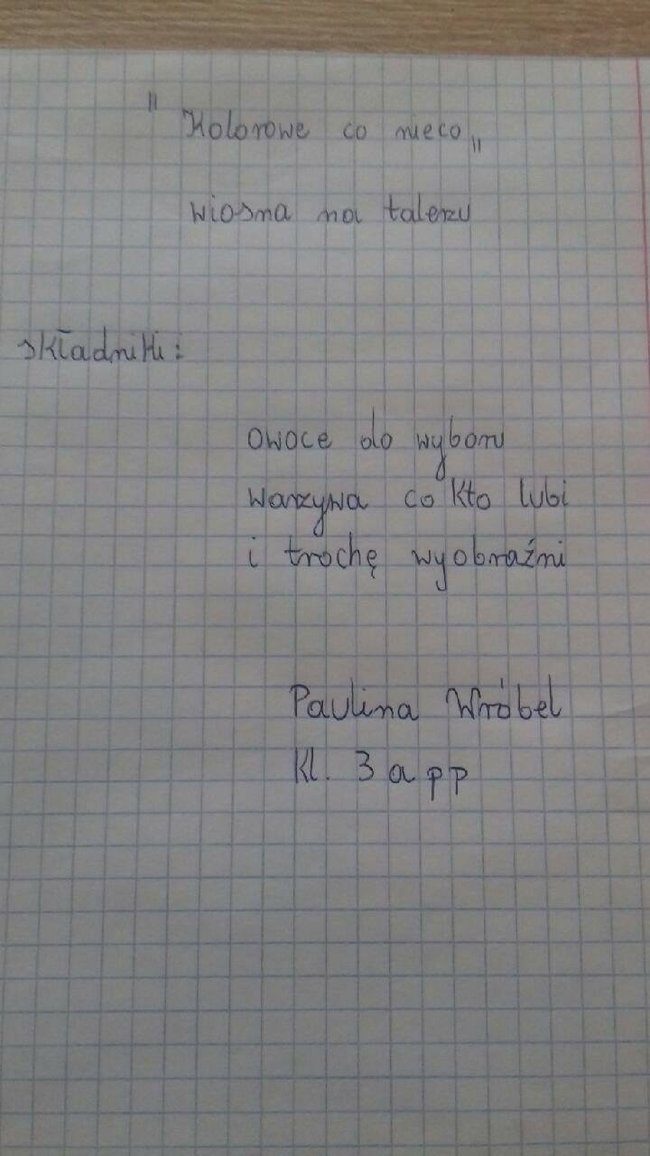 " Kolorowe co nieco „
wiosna na talerzu
składniki:
owoce do wyboru
warzywa co kto lubi
i trochę wyobraźni
Paulina Wróbel
Kl. 3 a pp